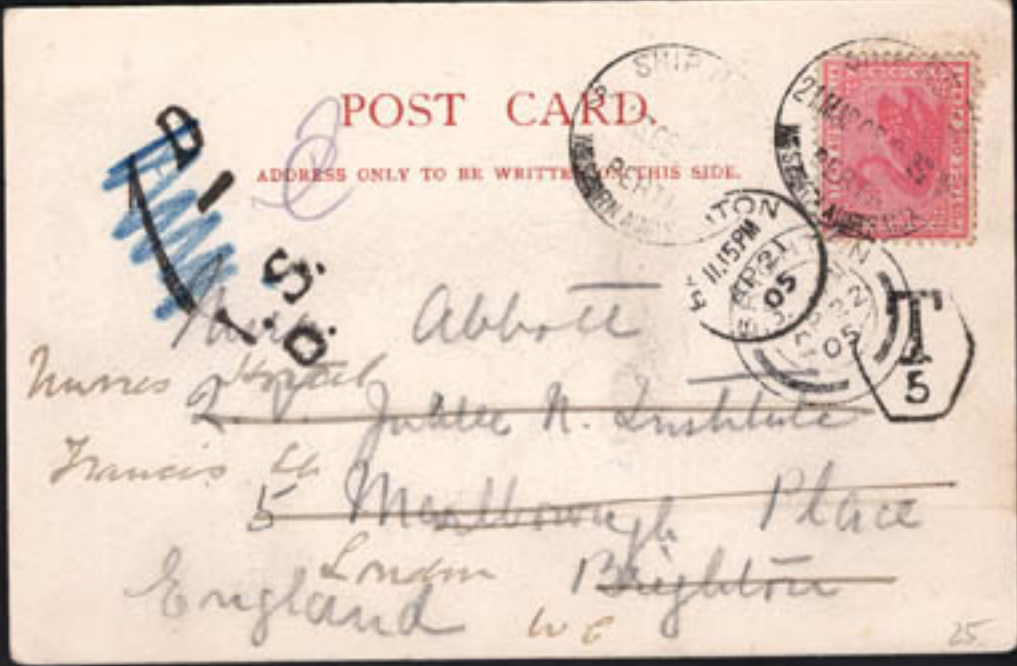 POST CARD.
ADDRESS ONLY TO BE WRITTEN ON THIS SIDE.
SHIP
PERTH
WESTERN AUS
21 MAR 05
PERTH
WESTERN AUSTRALIA
TON
11.15 PM
AP 21
05
BRIGHTON
05
T
5
D I S D
1
Abbott
Nurses Hostel
Q. V. Jubilee N. Institute
Francis St
5 Marlborough Place
London Brighton
England
W C
25